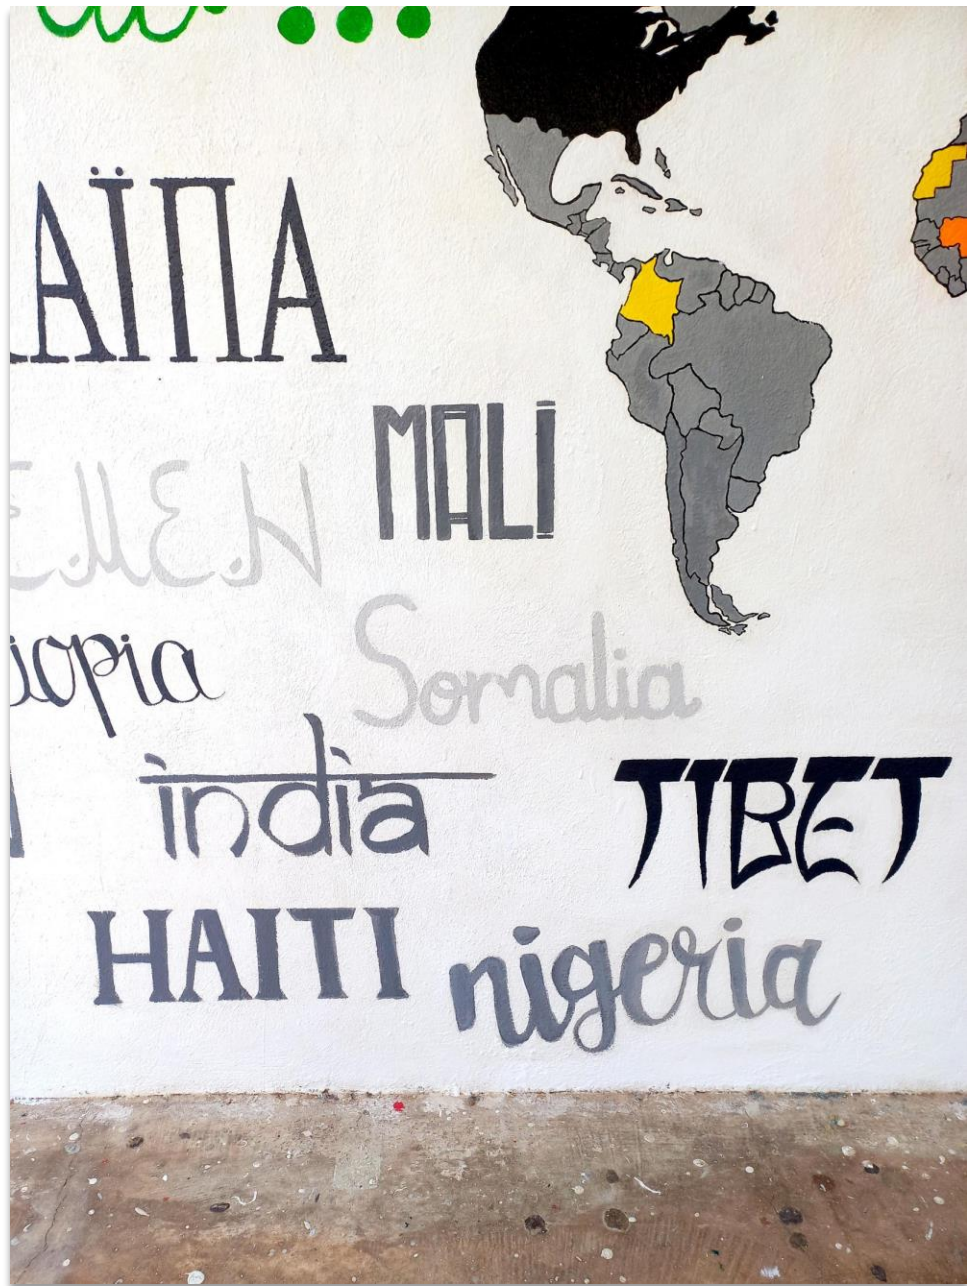 АЇПА
MALI
EMEN
iopia
Somalia
india
TIBET
HAITI
nigeria